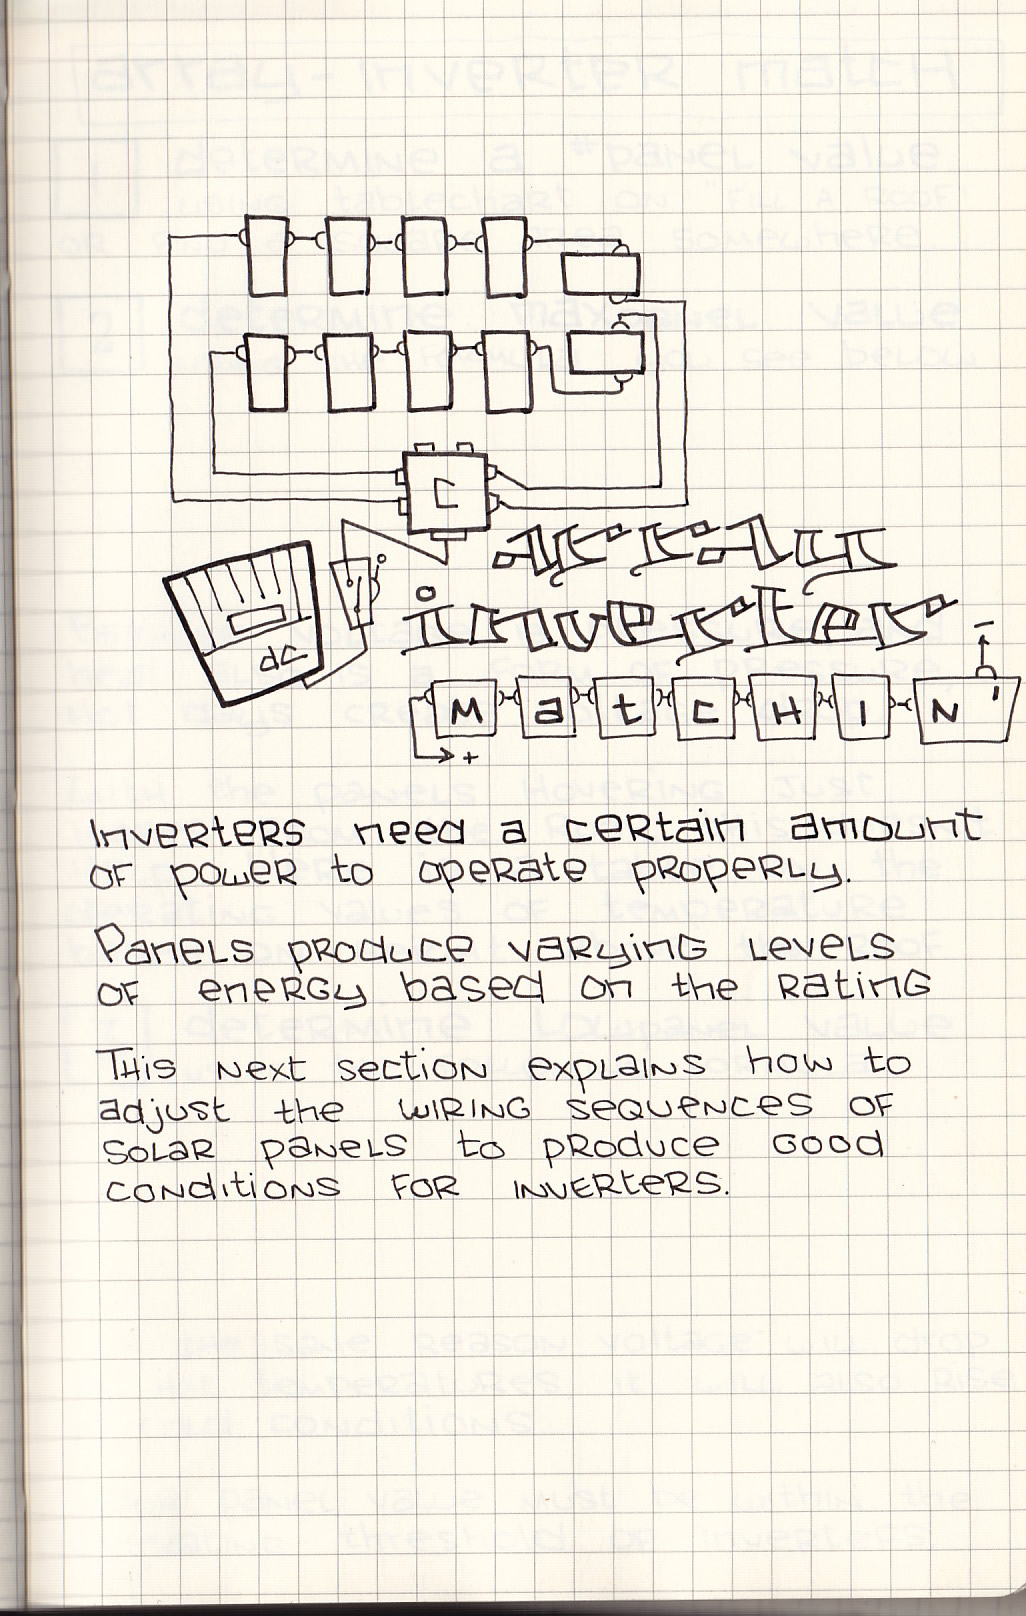 C
Array
dc
inverter
-
MatCHIN'
+
Inverters need a certain amount
of power to operate properly.
Panels produce varying levels
of energy based on the rating
This next section explains how to
adjust the wiring sequences of
solar panels to produce good
conditions for inverters.